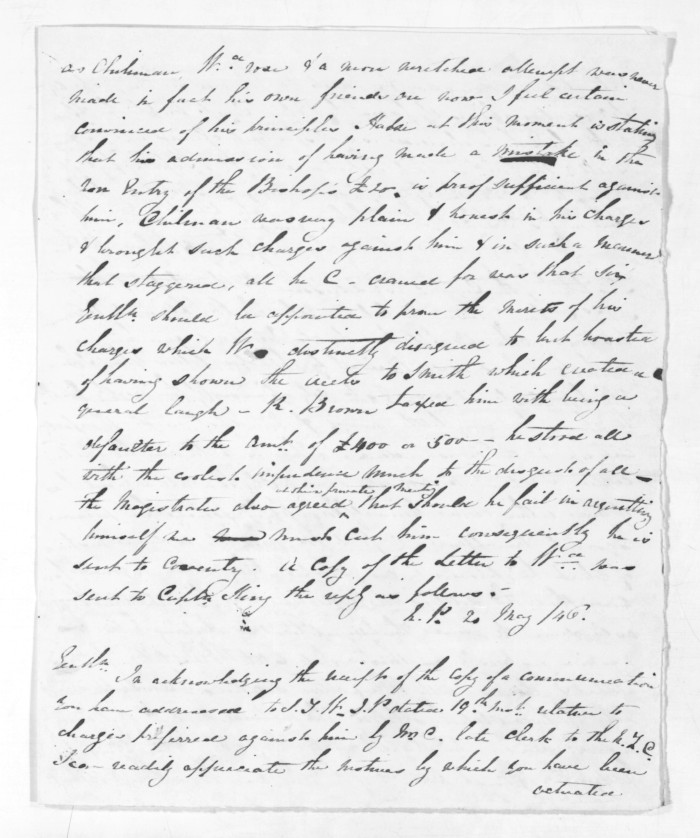 as Chilman, W.ce rose & a more wretched attempt was never
made in fact his own friends are now I feel certain
convinced of his principles Halse at this moment is stating
that his admission of having made a mistake in the
non Entry of the Bishop's £20. is proof sufficient against
him, Chilman was very plain & honest in his charges
& brought such charges against him & in such a manner
that staggered, all he C- craved for was that six
Gentln. should be appointed to prove the merits of his
charges which W. distinctly disagreed to but boasted
of having shown the accts to Smith which created a
general laugh - R. Brown taxed him with being a
defaulter to the amt. of £400 or 500 - he stood all
with the coolest impudence much to the disgust of all -
the Magistrates also agreed at their private Meeting that should he fail in acquitting
himself we must cut him consequently he is
sent to Coventry. A Copy of the Letter to W.ce was
sent to Captn. King the reply as follows:-
N.P. 20 May /46.
Gentln.
In acknowledging the receipt of the copy of a communication
you have addressed to J.T.W. J.P. dated 19th inst. relative to
charges preferred against him by Mr C. late clerk to the N.Z.C.
I can readily appreciate the motives by which you have been
actuated